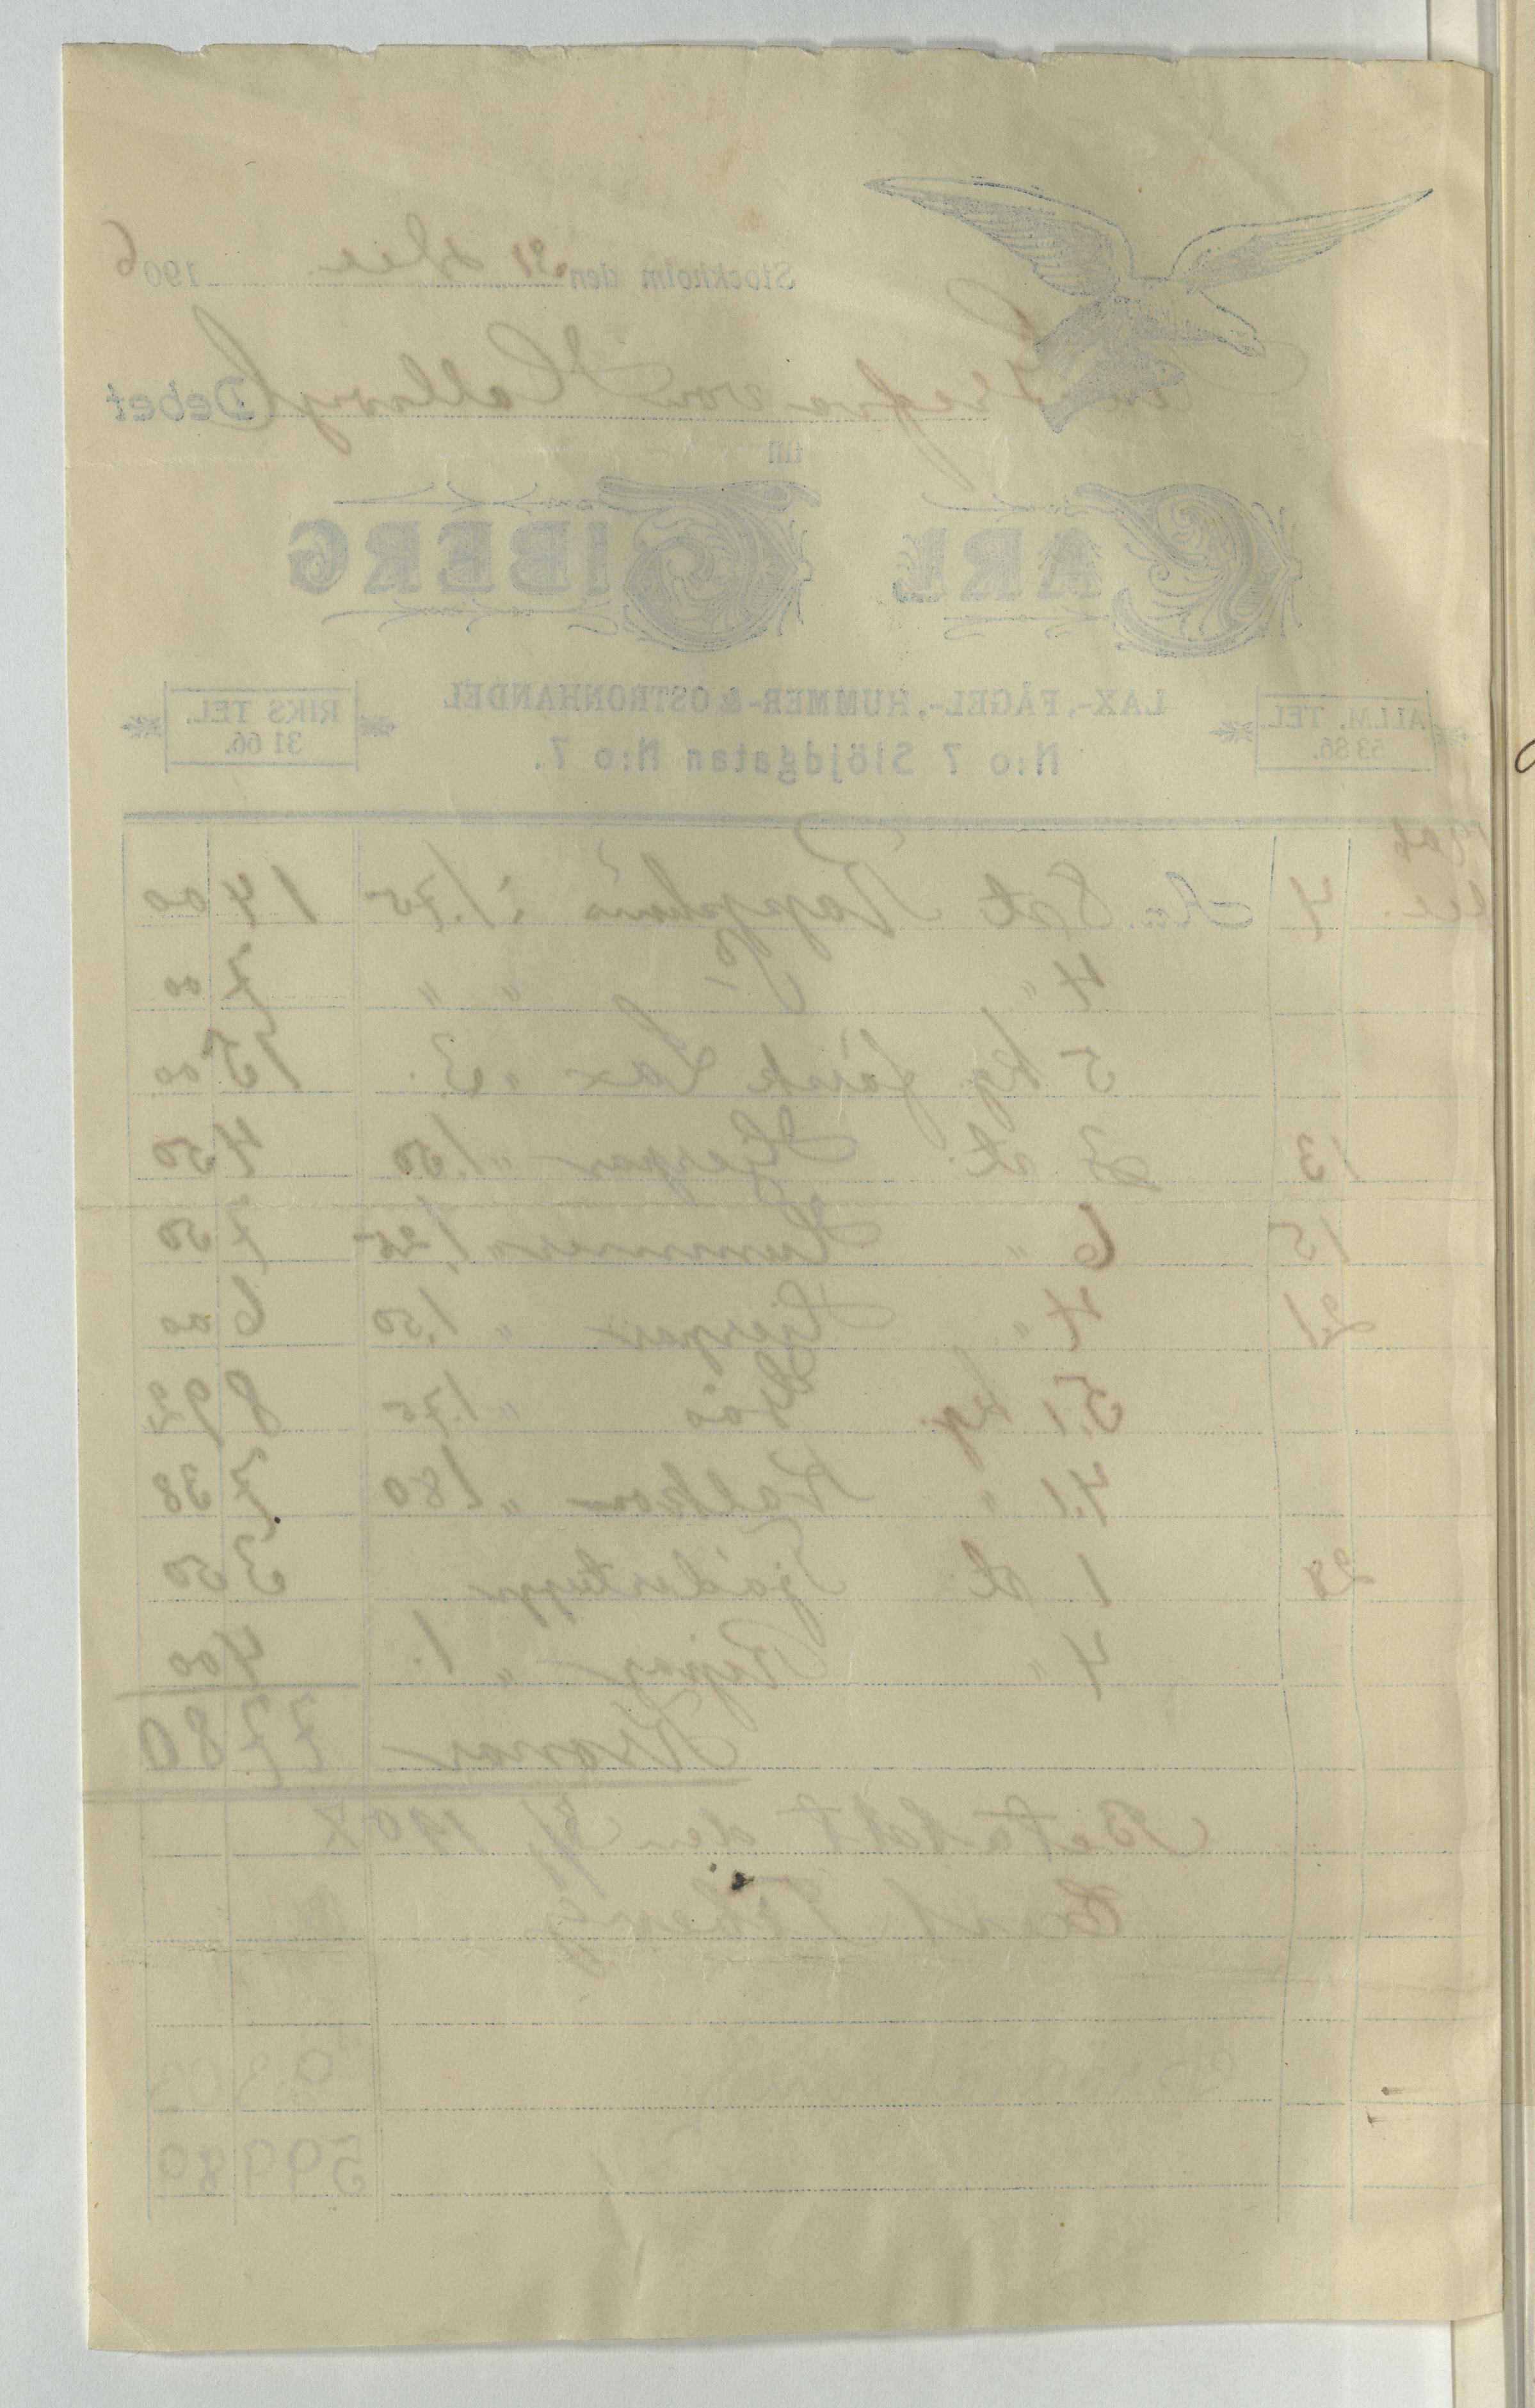 Stockholm den 31 Dec 1906
von Hallwyl Debet
till
CARL TIBERG
LAX-, FÅGEL-, HUMMER- & OSTRONHANDEL
ALLM. TEL. 53 86.
RIKS TEL. 31 66.
N:o 7 Slöjdgatan N:o 7.
1906
Dec. 4 8 st Rapphöns 1.75 14 00
4 " " " 7 00
5 kg färsk Lax " 3. 15 00
13 3 st. Hjerpar " 1.50 4 50
15 6 " Hummer " 1,25 7 50
21 4 " Hjerpar " 1,50 6 00
5,1 kg. " 1.75 8 92
4,1 " Kalkon " 1.80 7 38
28 1 st. Tjädertupp 3 50
4 " Ripor " 1. 4 00
Kronor 77 80
Betaldt den 1907
Carl Tiberg
599 80